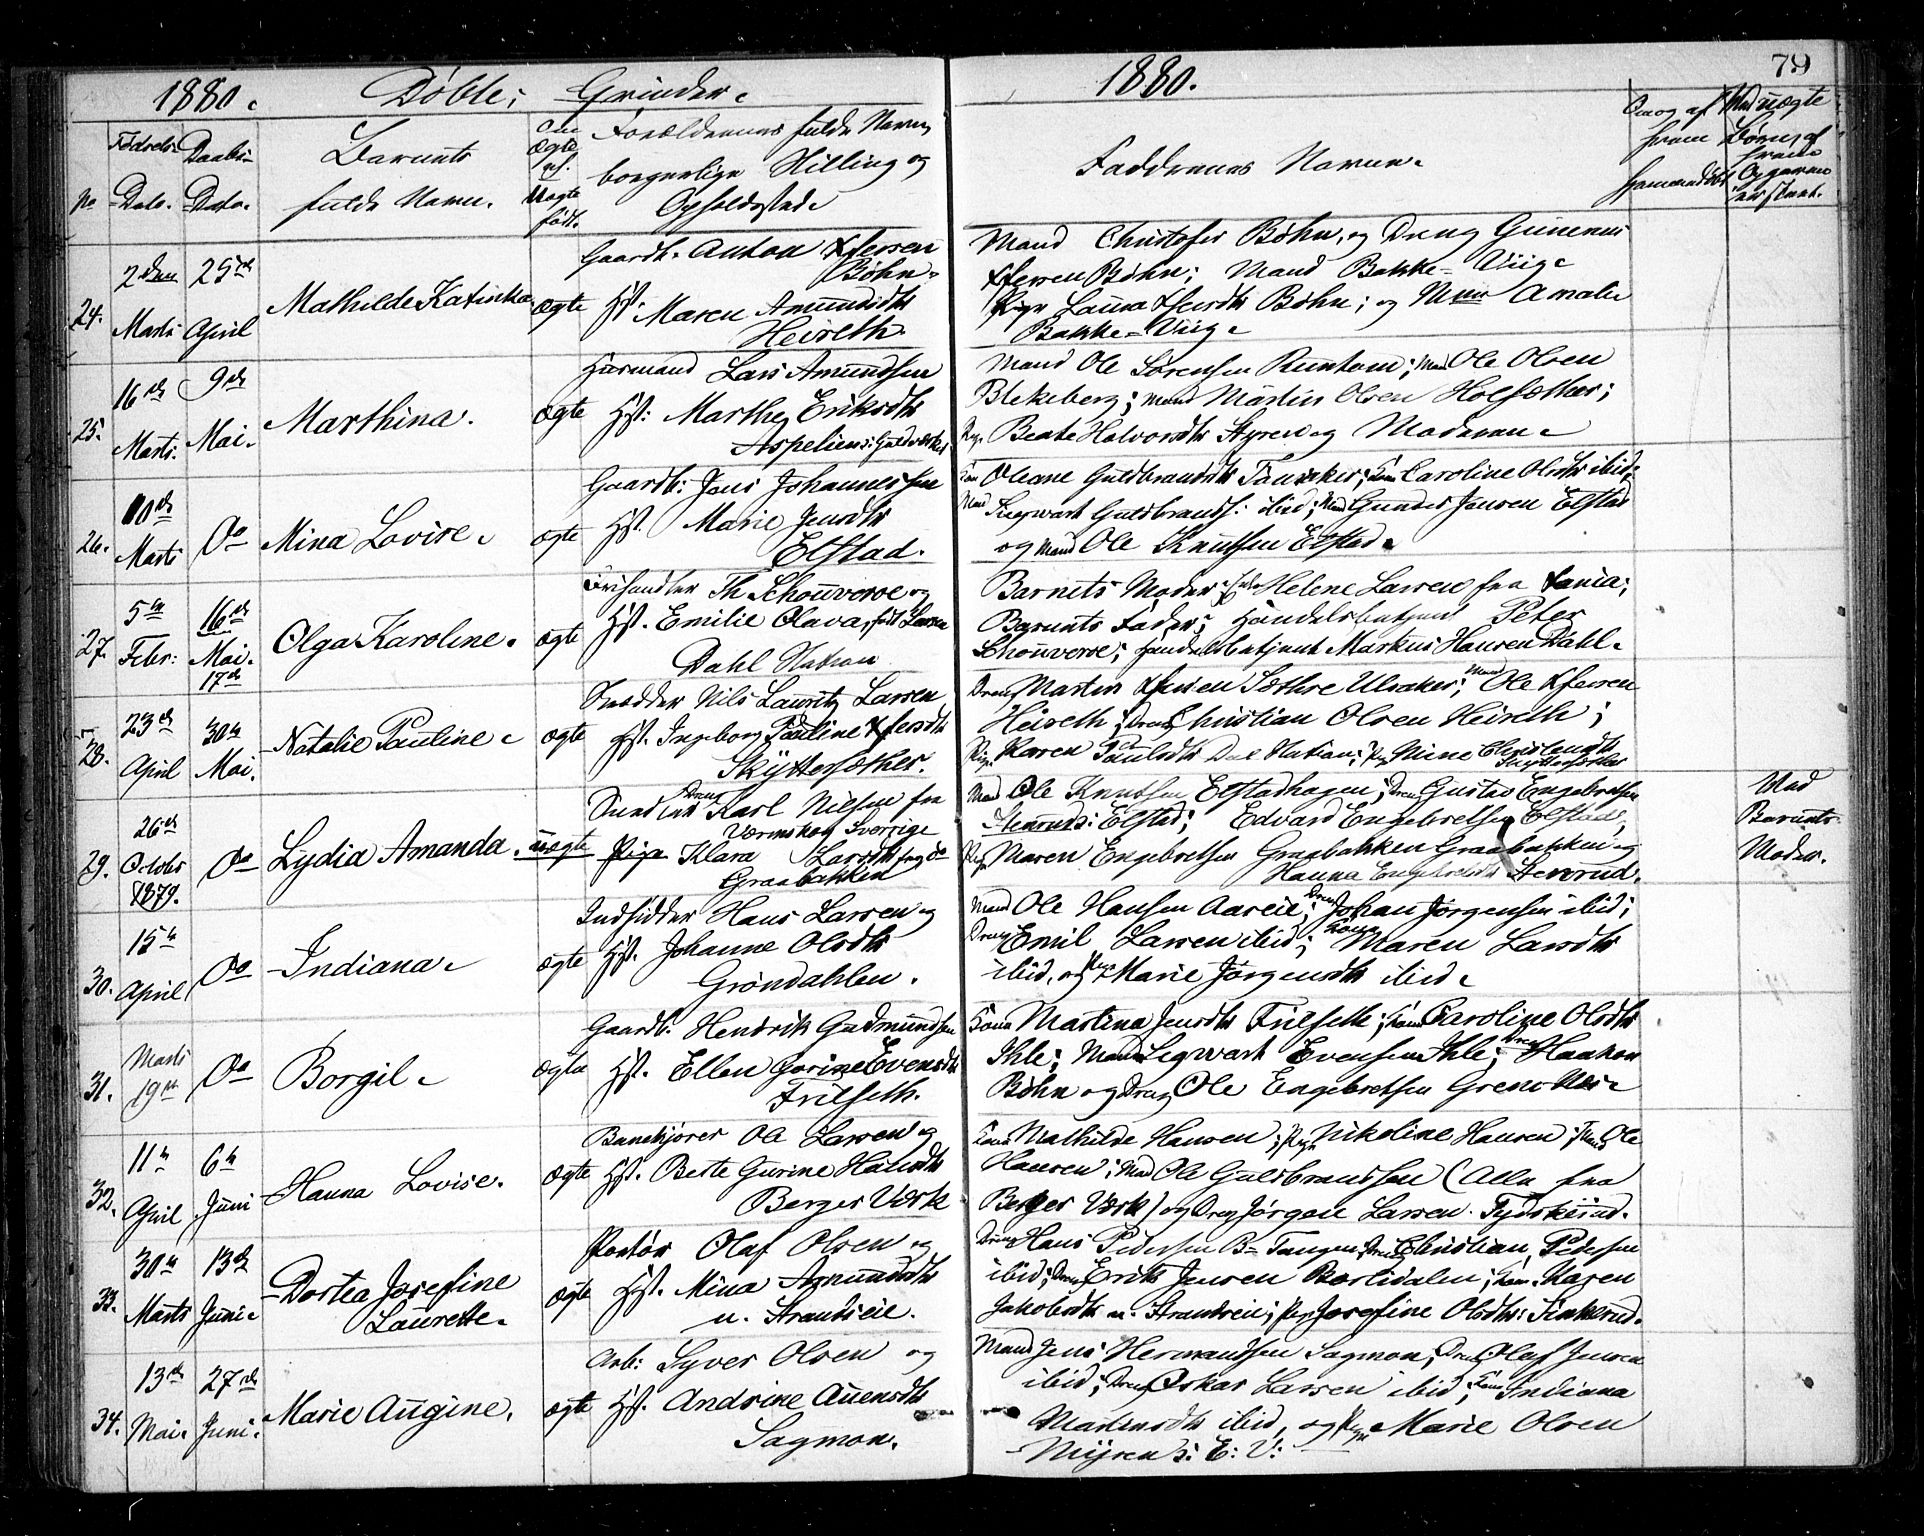 1880. Døbte; Grinder. 1880. 79
Fødsels- Daabs- Barnets Om Ægte el. Uægte født. Forældrenes fulde Navn, Faddernes Navne. Om og af hvem Ved uægte Børn, af hvem
No Dato. Dato. fulde Navn. borgerlige Stilling og Opholdssted. hjemmedøbt Opgaven
24. 2den Marts 25de April Mathilde Katinka. ægte
Gaardb. Anton
Bøhn.
Hst. Maren Amundsdtr
Heiseth.
Mand Christofer Bøhn, og Dreng Gunerius
Bøhn; Mand Bakke-Viig.
Pige Laura Bøhn; og Amalie
Bakke-Viig.
25. 16de Marts. 9de Mai. Marthina. ægte
Husmand Lars Amundsen
Hst: Marthe Eriksdtr
Mand Ole Sørensen ; Mand Ole Olsen
Blekeberg; Mand Martin Olsen Holsæther;
Pige Beate Halvorsdtr og Moderen.
26. 10de Marts Do Mina Lovise. ægte
Gaardb: Jens Johannessen
Hst. Marie Jensdtr
Elstad.
Kone Oleane Guldbrandsdtr ; Kone Caroline Olsdtr ibid;
Mand Guldbrands: ibid; Mand Gunder Jensen Elstad
og Mand Ole Knutsen Elstad.
27. 5te Febr: 16de Mai. 17de Olga Karoline. ægte
Th. Schouveroe og
Hst. Emilie Olava, født Larsen
Dahl Station
Barnets Moder; Helene Larsen fra
Barnets Fader; Handelsbetjent Peter
Schouveroe; Handelsbetjent Markus Hansen Dahl.
28. 23de April 30te Mai. Natalie Pauline. ægte
Snedder Nils Lauritz Larsen
Hst. Ingeborg Pauline
Skyttesæther.
Dreng Martin Sæthre Ulvaker; Mand Ole
Heiseth; Dreng Christian Olsen Heiseth;
Pige Karen Paulsdtr Dal Station; Pige Mine Christensdtr
Skyttesæther
29. 26de October 1879. Do Lydia Amanda. uægte
Dreng Karl Nilsen fra
Sverrige
Pige Klara Larsdtr
Graabakken
Mand Ole Knutsen Elstadhagen; Dreng Gustav Engebretsen
Elstad; Edvard Engebretsen Elstad,
Pige Maren Engebretsen Graabakken Graabakken og
Hanna Engebretsdtr
Ved
Barnets
Moder.
30. 15te April Do Indiana. ægte
Indsidder Hans Larsen og
Hst. Johanne Olsdtr
Grøndahlen.
Mand Ole Hansen Aareie; Dreng Johan Jørgensen ibid;
Dreng Emil Larsen ibid; Kone Maren Larsdtr
ibid, og Pige Marie Jørgensdtr ibid.
31. Marts 19de Do Borgil. ægte
Gaardb. Hendrik Gudmundsen
Hst. Ellen Jorine Evensdtr
Frilseth.
Kone Martina Jensdtr Frilseth; Kone Caroline Olsdtr
Ihle; Mand Segwart Evensen Ihle; Dreng Haakon
Bøhn og Dreng Ole Engebretsen
32. 11te April 6te Juni Hanna Lovise. ægte
Banekjører Ole Larsen og
Hst. Bette Gurine Hansdtr
Berger Værk
Kone Mathilde Hansen; Pige Nikoline Hansen; Mand Ole
Hansen; Mand Ole Guldbrandsen (Alle fra
Berger Værk) og Dreng Jørgen Larsen
33. 30te Marts 13de Juni. Dortea Josefine
Laurette.
ægte
Portør Olaf Olsen og
Hst. Mina Amundsdtr
u. Strandseie.
Dreng Hans Pedersen Tangen; Dreng Christian Pedersen
ibid; Dreng Erik Jensen ; Kone Karen
Jakobsdtr u. Strandseie; Pige Josefine Olsdtr: Finkerud.
34. 13de Mai. 27de Juni. Marie Augine. ægte
Arb: Syver Olsen og
Hst. Andrine Auensdtr
Sagmon.
Mand Jens Hermandsen Sagmon; Dreng Olaf Jensen
ibid; Dreng Oskar Larsen ibid; Kone Indiana
Martinsdtr ibid, og Pige Marie Olsen
Myren i: E: V: